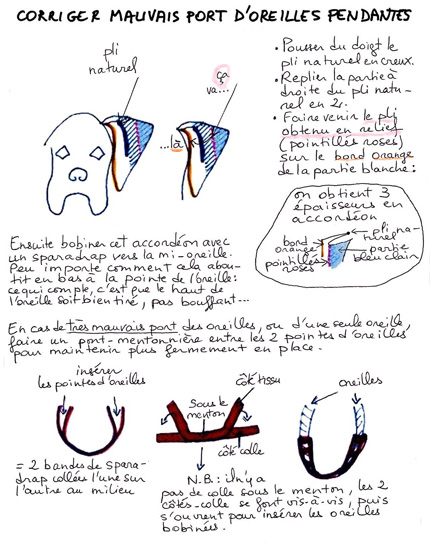 CORRIGER MAUVAIS PORT D'OREILLES PENDANTES
pli
naturel
ça
va...
...là
• Pousser du doigt le
pli naturel en creux.
• Replier la partie à
droite du pli natu-
rel en 2.
• Faire venir le pli
obtenu en relief
(pointillés roses)
sur le bord orange
de la partie blanche:
on obtient 3
épaisseurs en
accordéon
bord
orange
pointillés
roses
pli na-
turel
partie
bleu clair
Ensuite bobiner cet accordéon avec
un sparadrap vers la mi-oreille.
Peu importe comment cela abou-
tit en bas à la pointe de l'oreille:
ce qui compte, c'est que le haut de
l'oreille soit bien tiré, pas bouffant...
En cas de très mauvais port des oreilles, ou d'une seule oreille,
faire un pont-mentonnière entre les 2 pointes d'oreilles
pour maintenir plus fermement en place.
insérer
les pointes d'oreilles
= 2 bandes de spara-
drap collées l'une sur
l'autre au milieu
côté tissu
sous le
menton
côté colle
oreilles
N.B.: il n'y a
pas de colle sous le menton, les 2
côtés-colle se font vis-à-vis, puis
s'ouvrent pour insérer les oreilles
bobinées.